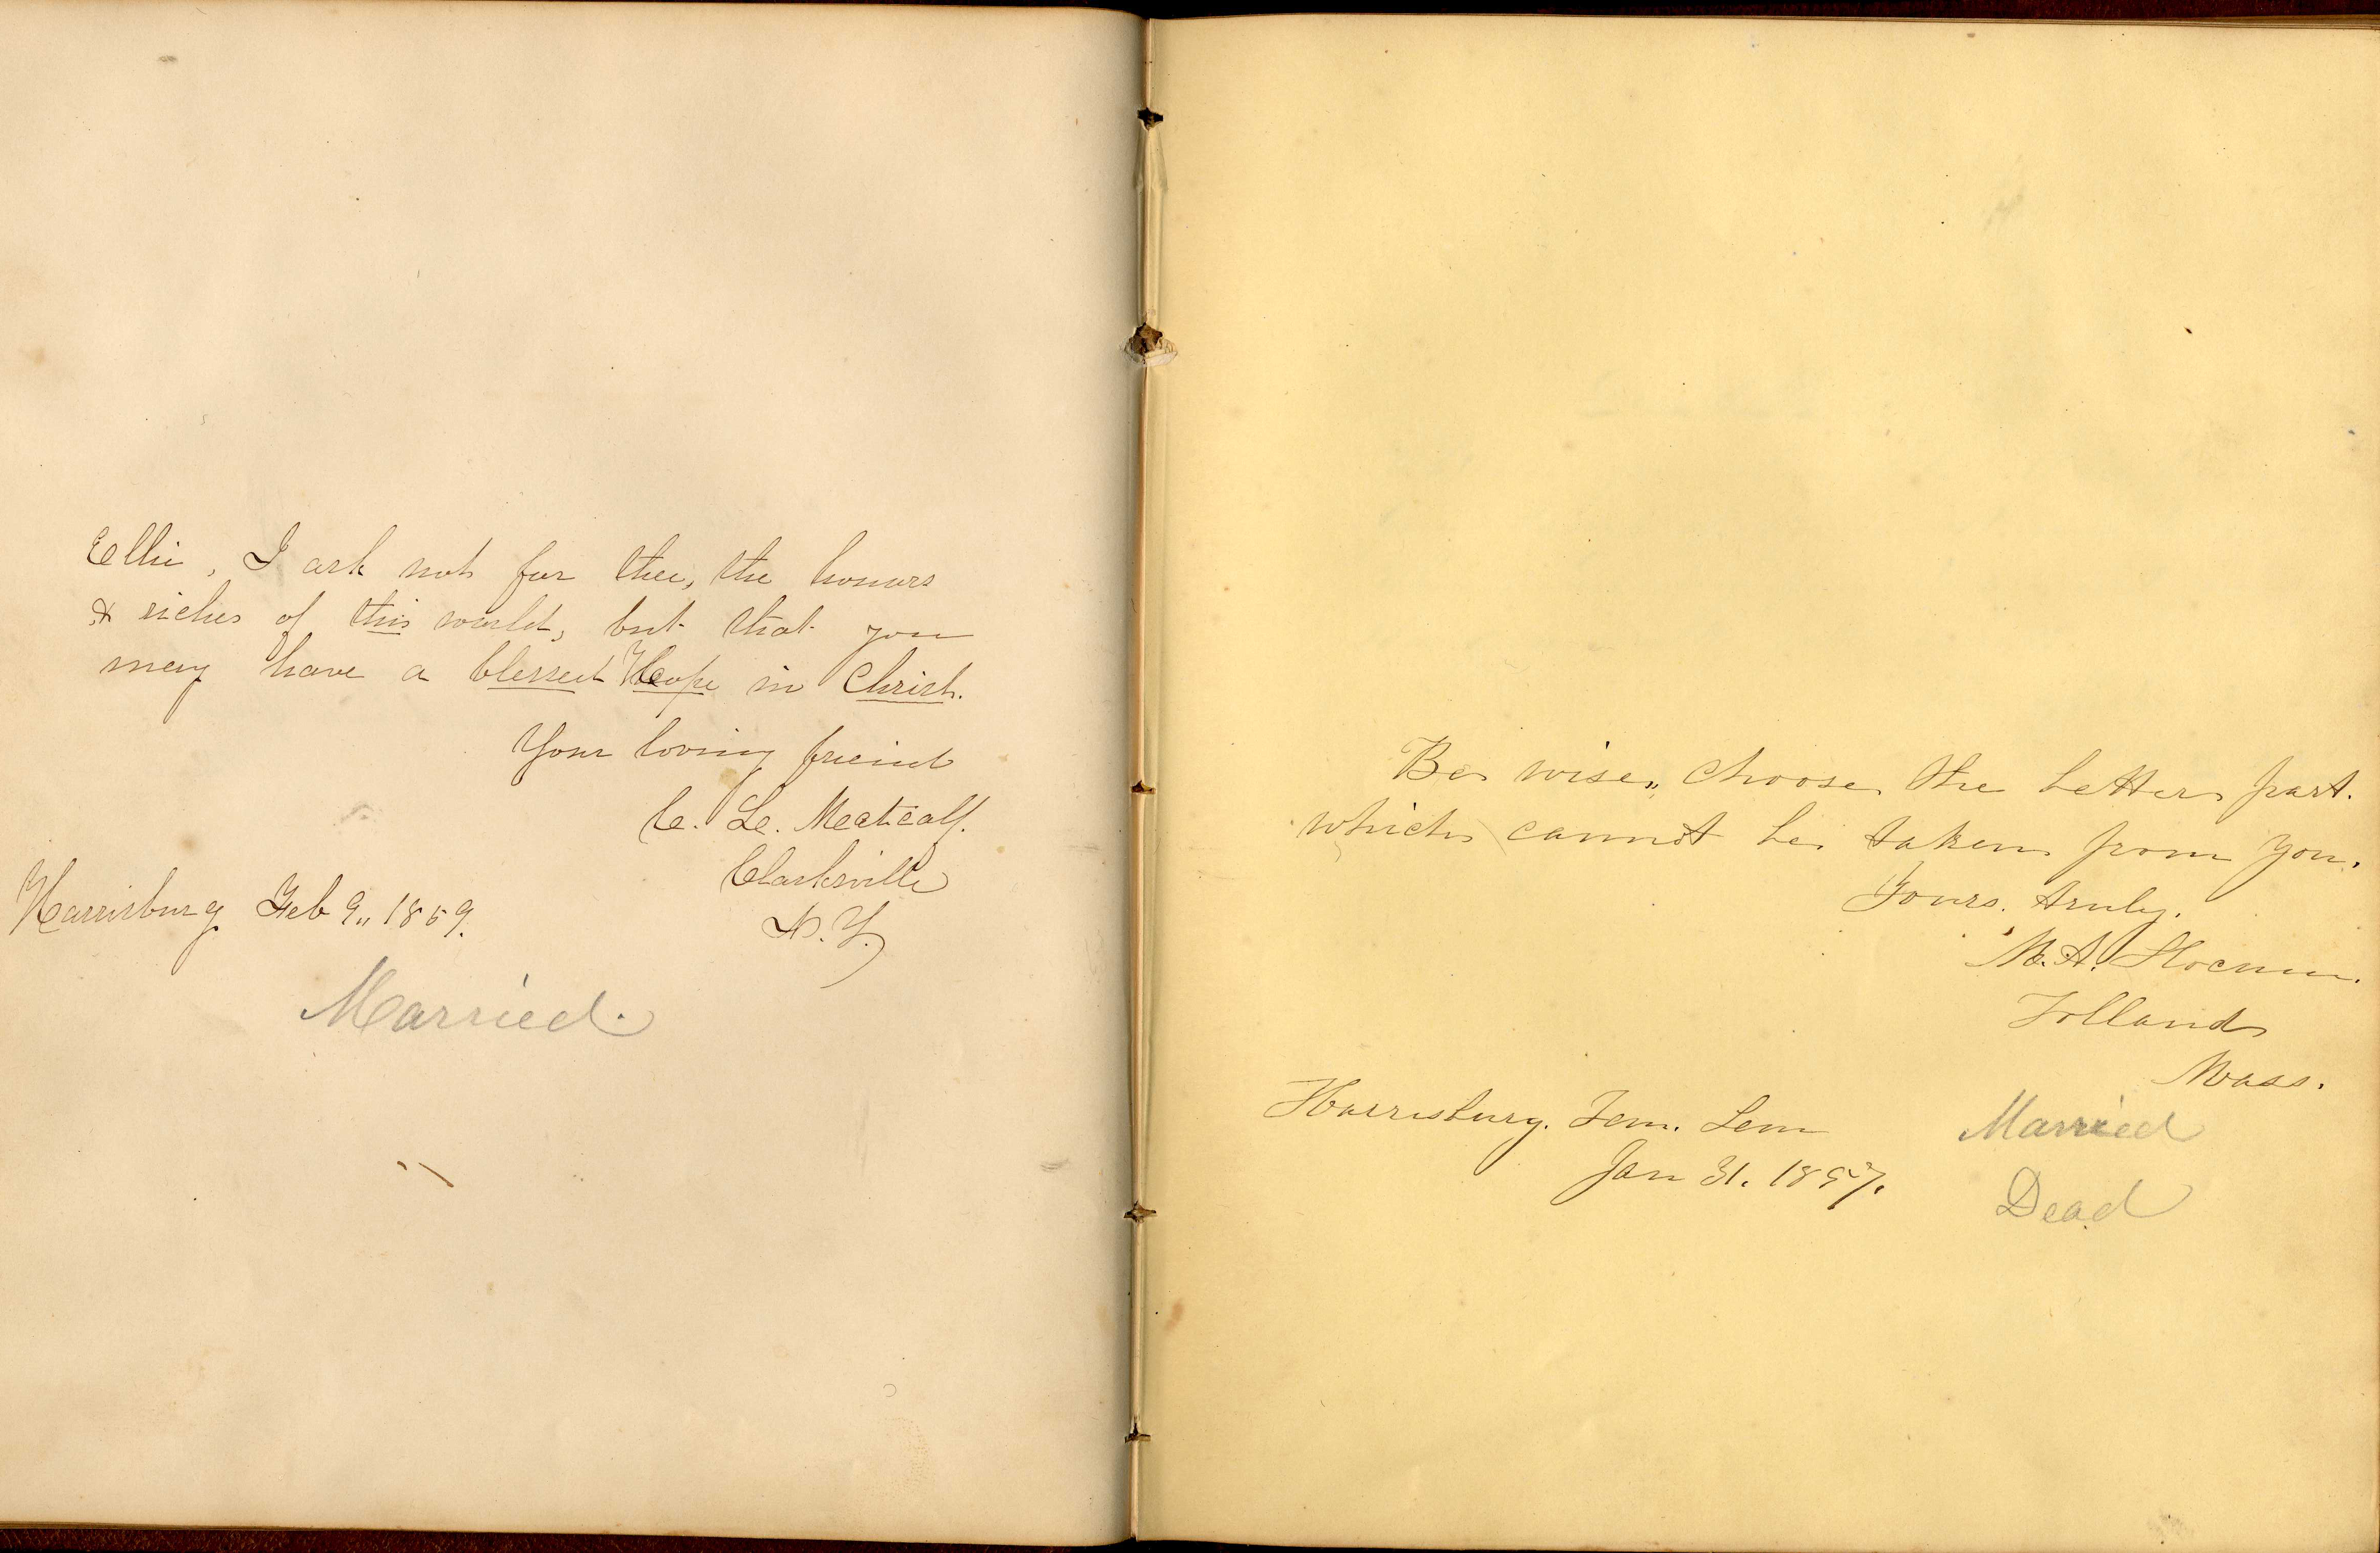 Ellie, I ask not for thee, the honors
& riches of this world, but that you
may have a blessed Hope in Christ.
Your loving freind
C. L. Metcalf.
Clarksville
N. Y.
Harrisburg Feb 9,, 1859.
Married.
Be wise,, choose the better part.
which cannot be taken from you.
Yours. truly.
M. A. Slocum.
Tolland
Mass.
Harrisburg. Fem. Sem
Jan 31. 1857.
Married
Dead